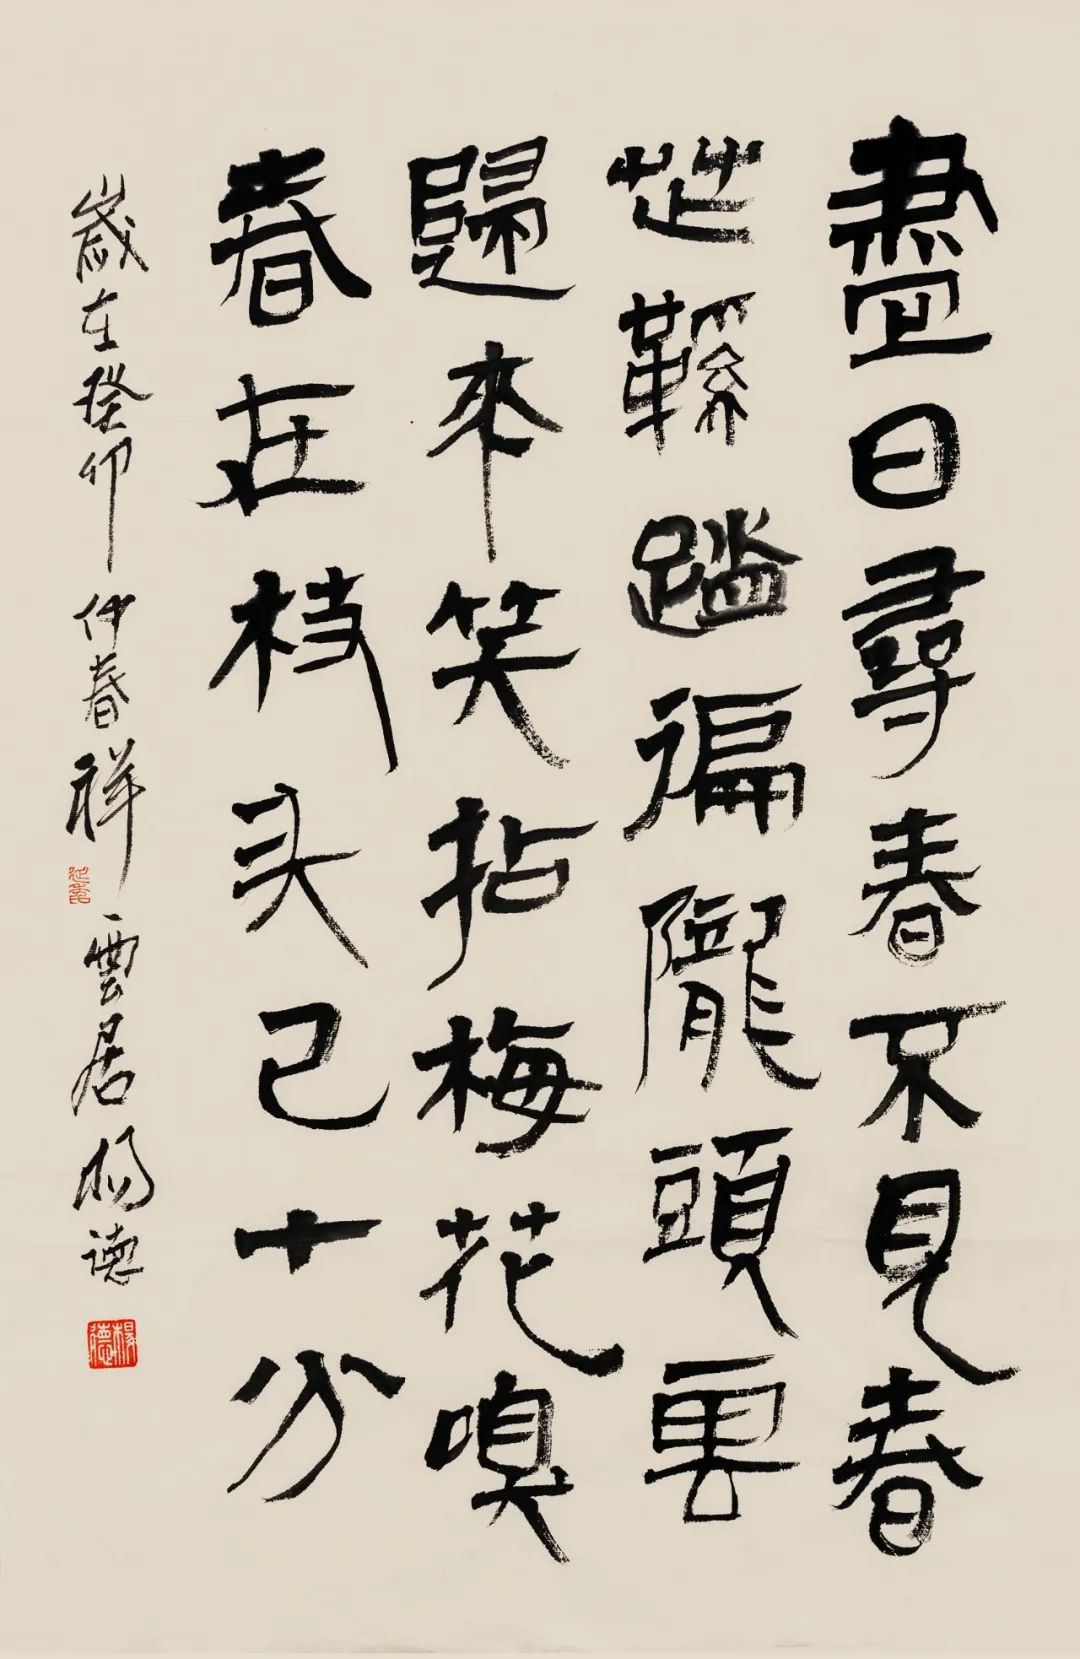 盡日尋春不見春
芒鞵踏徧隴頭雲
歸來笑拈梅花嗅
春在枝头已十分
歲在癸卯仲春祥雲居杨德
楊德